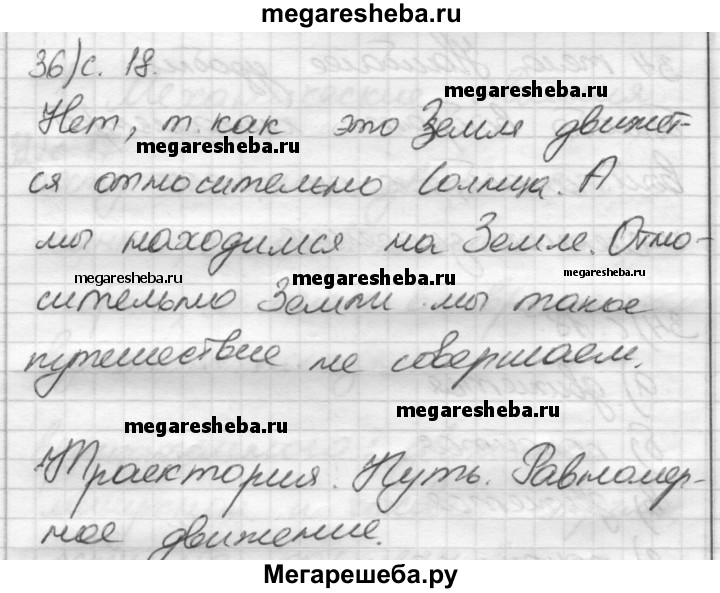 megaresheba.ru
36) с. 18.
megaresheba.ru
Нет, т. как это Земля движет-
megaresheba.ru
ся относительно Солнца. А
мы находимся на Земле. Отно-
megaresheba.ru megaresheba.ru megaresheba.ru
сительно Земли мы такое
путешествие не совершаем.
megaresheba.ru megaresheba.ru
Траектория. Путь. Равномер-
ное движение.
Мегарешеба.ру